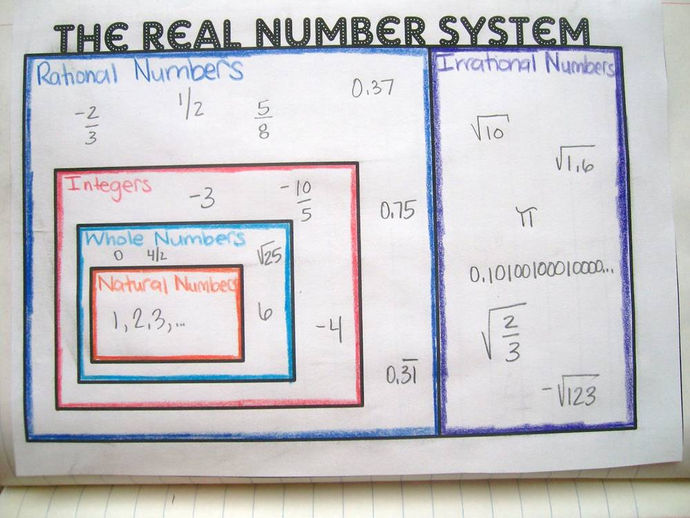 THE REAL NUMBER SYSTEM
Rational Numbers
-2/3
1/2
5/8
0.37
Integers
-3
-10/5
0.75
Whole Numbers
0 4/2 √25
Natural Numbers
1, 2, 3, ...
6
-4
0.3̅1̅
Irrational Numbers
√10
√1,6
π
0.10100100010000...
√2/3
-√123